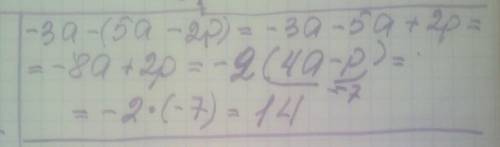 -3a-(5a-2p)=-3a-5a+2p=
=-8a+2p=-2(4a-p)=
-7
=-2·(-7)=14